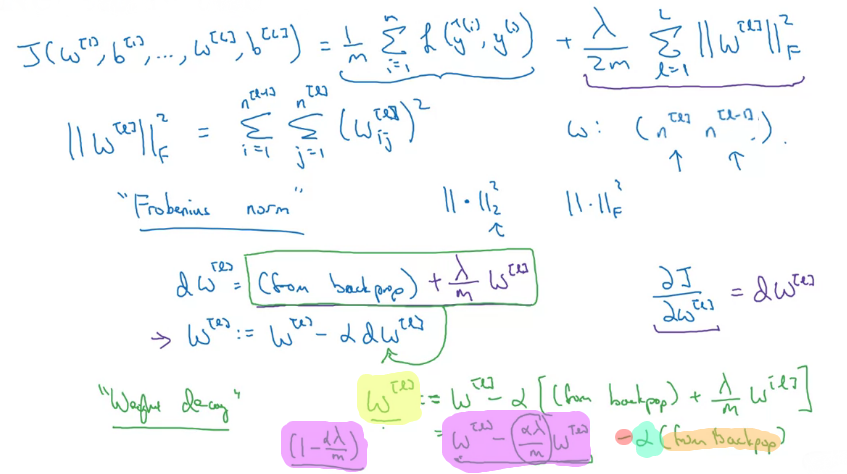 J(w^[1], b^[1], ..., w^[L], b^[L]) = 1/m Σ_{i=1}^{n} L(ŷ^(i), y^(i)) + λ/2m Σ_{l=1}^{L} ||w^[l]||_F^2
||w^[l]||_F^2 = Σ_{i=1}^{n^[l-1]} Σ_{j=1}^{n^[l]} (w_ij^[l])^2 w: (n^[l] n^[l-1]).
"Frobenius norm" ||·||_2^2 ||·||_F^2
dw^[l] = (from backprop) + λ/m w^[l] ∂J/∂w^[l] = dw^[l]
→ w^[l] := w^[l] - α dw^[l]
"Weight decay" w^[l] := w^[l] - α [(from backpop) + λ/m w^[l]]
(1 - αλ/m) = w^[l] - αλ/m w^[l] - α (from backpop)